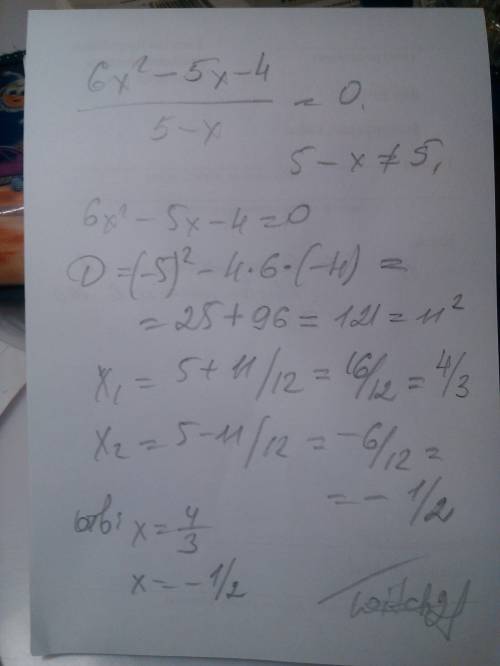 6x² - 5x - 4
5 - x
= 0.
5 - x ≠ 5,
6x² - 5x - 4 = 0
D = (-5)² - 4·6·(-4) =
= 25 + 96 = 121 = 11²
x₁ = 5 + 11/12 = 16/12 = 4/3
x₂ = 5 - 11/12 = -6/12 =
= - 1/2
x = 4/3
x = - 1/2